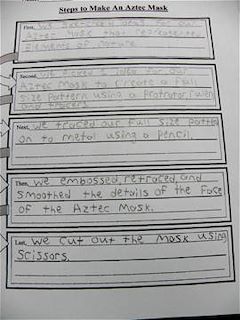 Steps to Make An Aztec Mask
First, we sketched ideas for our
Aztec Mask that represented
elements of nature.
Second, we picked 1 idea for our
Aztec Mask to create a full
size pattern using a protractor, ruler
and
Next, we traced our full size pattern
on to metal using a pencil.
Then, we embossed, retraced, and
smoothed the details of the face
of the Aztec Mask.
Last, we cut out the mask using
scissors.